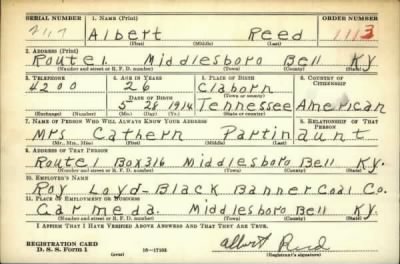 SERIAL NUMBER 1. NAME (Print) ORDER NUMBER
Albert Reed 1113
(First) (Middle) (Last)
2. ADDRESS (Print)
Route 1. Middlesboro Bell Ky.
(Number and street or R. F. D. number) (Town) (County) (State)
3. TELEPHONE 4. AGE IN YEARS 5. PLACE OF BIRTH 6. COUNTRY OF CITIZENSHIP
4200 26 Claborn
DATE OF BIRTH (Town or county)
5 28 1914 Tennessee American
(Exchange) (Number) (Mo.) (Day) (Yr.) (State or country)
7. NAME OF PERSON WHO WILL ALWAYS KNOW YOUR ADDRESS 8. RELATIONSHIP OF THAT PERSON
Mrs Cathern Partin aunt
(Mr., Mrs., Miss) (First) (Middle) (Last)
9. ADDRESS OF THAT PERSON
Route 1 Box 316 Middlesboro Bell Ky.
(Number and street or R. F. D. number) (Town) (County) (State)
10. EMPLOYER'S NAME
Roy Loyd-Black Banner Coal Co.
11. PLACE OF EMPLOYMENT OR BUSINESS
Garmeda. Middlesboro Bell Ky.
(Number and street or R. F. D. number) (Town) (County) (State)
I AFFIRM THAT I HAVE VERIFIED ABOVE ANSWERS AND THAT THEY ARE TRUE.
REGISTRATION CARD Albert Reed
D. S. S. Form 1 (over) 16-17105 (Registrant's signature)